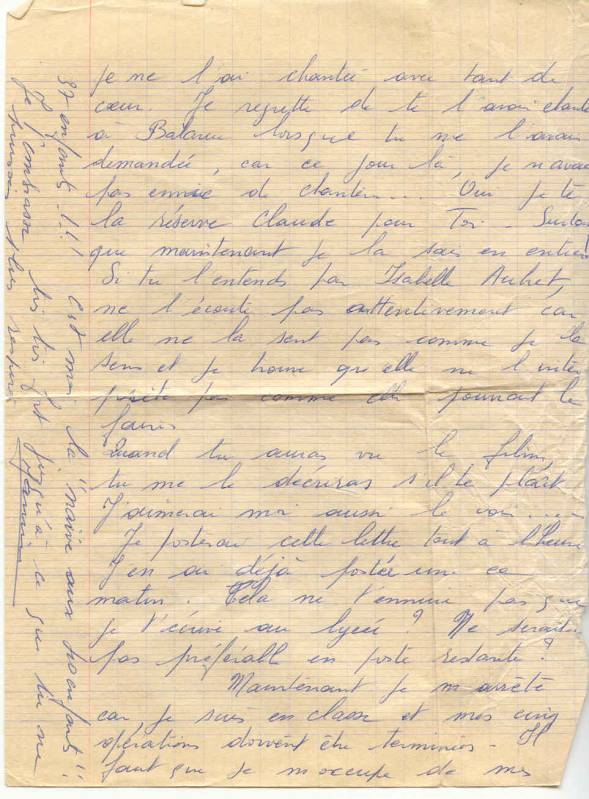 je ne l'ai chantée avec tant de
cœur. Je regrette de te l'avoir chanté
à Balaruc lorsque tu me l'avais
demandée, car ce jour là, je n'avais
pas envie de chanter.... Oui je te
la réserve Claude pour Toi. Surtout
que maintenant je la sais en entier!
Si tu l'entends par Isabelle Aubret,
ne l'écoute pas attentivement car
elle ne la sent pas comme je la
sens et je trouve qu'elle ne l'inter
prète pas comme elle pourrait le
faire.
Quand tu auras vu le film,
tu me le décriras s'il te plait
J'aimerai moi aussi le voir....
Je posterai cette lettre tout à l'heure
J'en ai déjà postée une ce
matin. Cela ne t'ennuie pas que
je t'écrive au lycée? Ne serait-il
pas préférable en poste restante?
Maintenant je m'arrête
car, je suis en classe et mes cinq
opérations doivent être terminées. Il
faut que je m'occupe de mes
37 enfants!!! C'est moi la "naïve aux 400 enfants"!!
Je t'embrasse très très fort jusqu'à ce que tu ne
puisses plus respirer